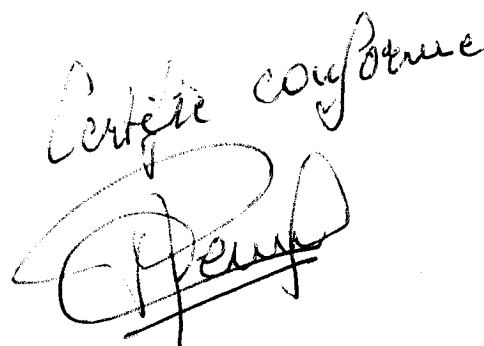 Certifie conforme